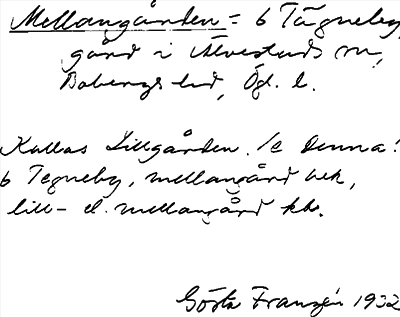 Mellangården = 6 Tägneby,
gård i Älvestads sn,
Bobergs hd, Ögl. l.
Kallas Lillgården. Se denna!
6 Tegneby, mellangård bek,
lill- el. mellangård kbr.
Gösta Franzén 1932